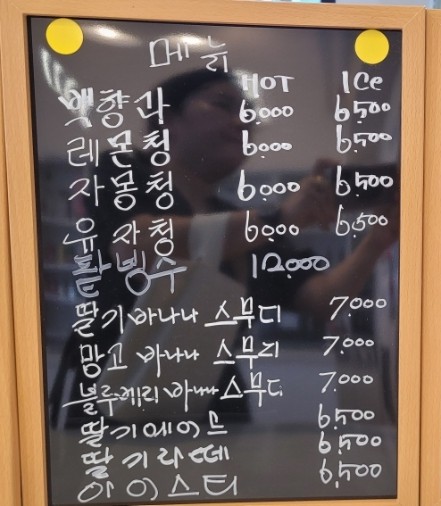 메뉴
HOT ICe
백향과 6.000 6.500
레몬청 6.000 6.500
자몽청 6.000 6.500
유자청 6.000 6.500
팥빙수 12.000
딸기바나나 스무디 7.000
망고 바나나 스무디 7.000
블루베리 바나나 스무디 7.000
딸기에이드 6.500
딸기라떼 6.500
아이스티 6.500